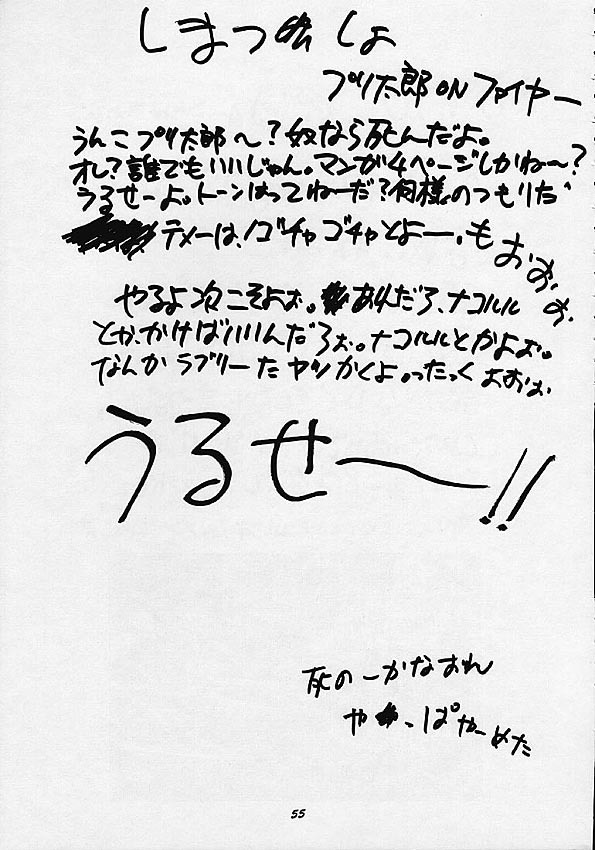 しまつ書しょ
プリ太郎 ON ファイヤー
うんこプリ太郎〜？奴なら死んだよ。
オレ？誰でもいいじゃん。マンガ4ページしかね〜？
うるせーよ。トーンはってねーだ？何様のつもりだ
テメーは、ゴチャゴチャとよー、もおおおお、
やるよ次こそよぉ。あれだろ、ナコルル
とか、かけばいいんだろぉ。ナコルルとかよぉ。
なんかラブリーなヤツかくよ。ったっくよおおぉ
うるせ〜!!
死のーかなおれ
やっぱやーめた
55